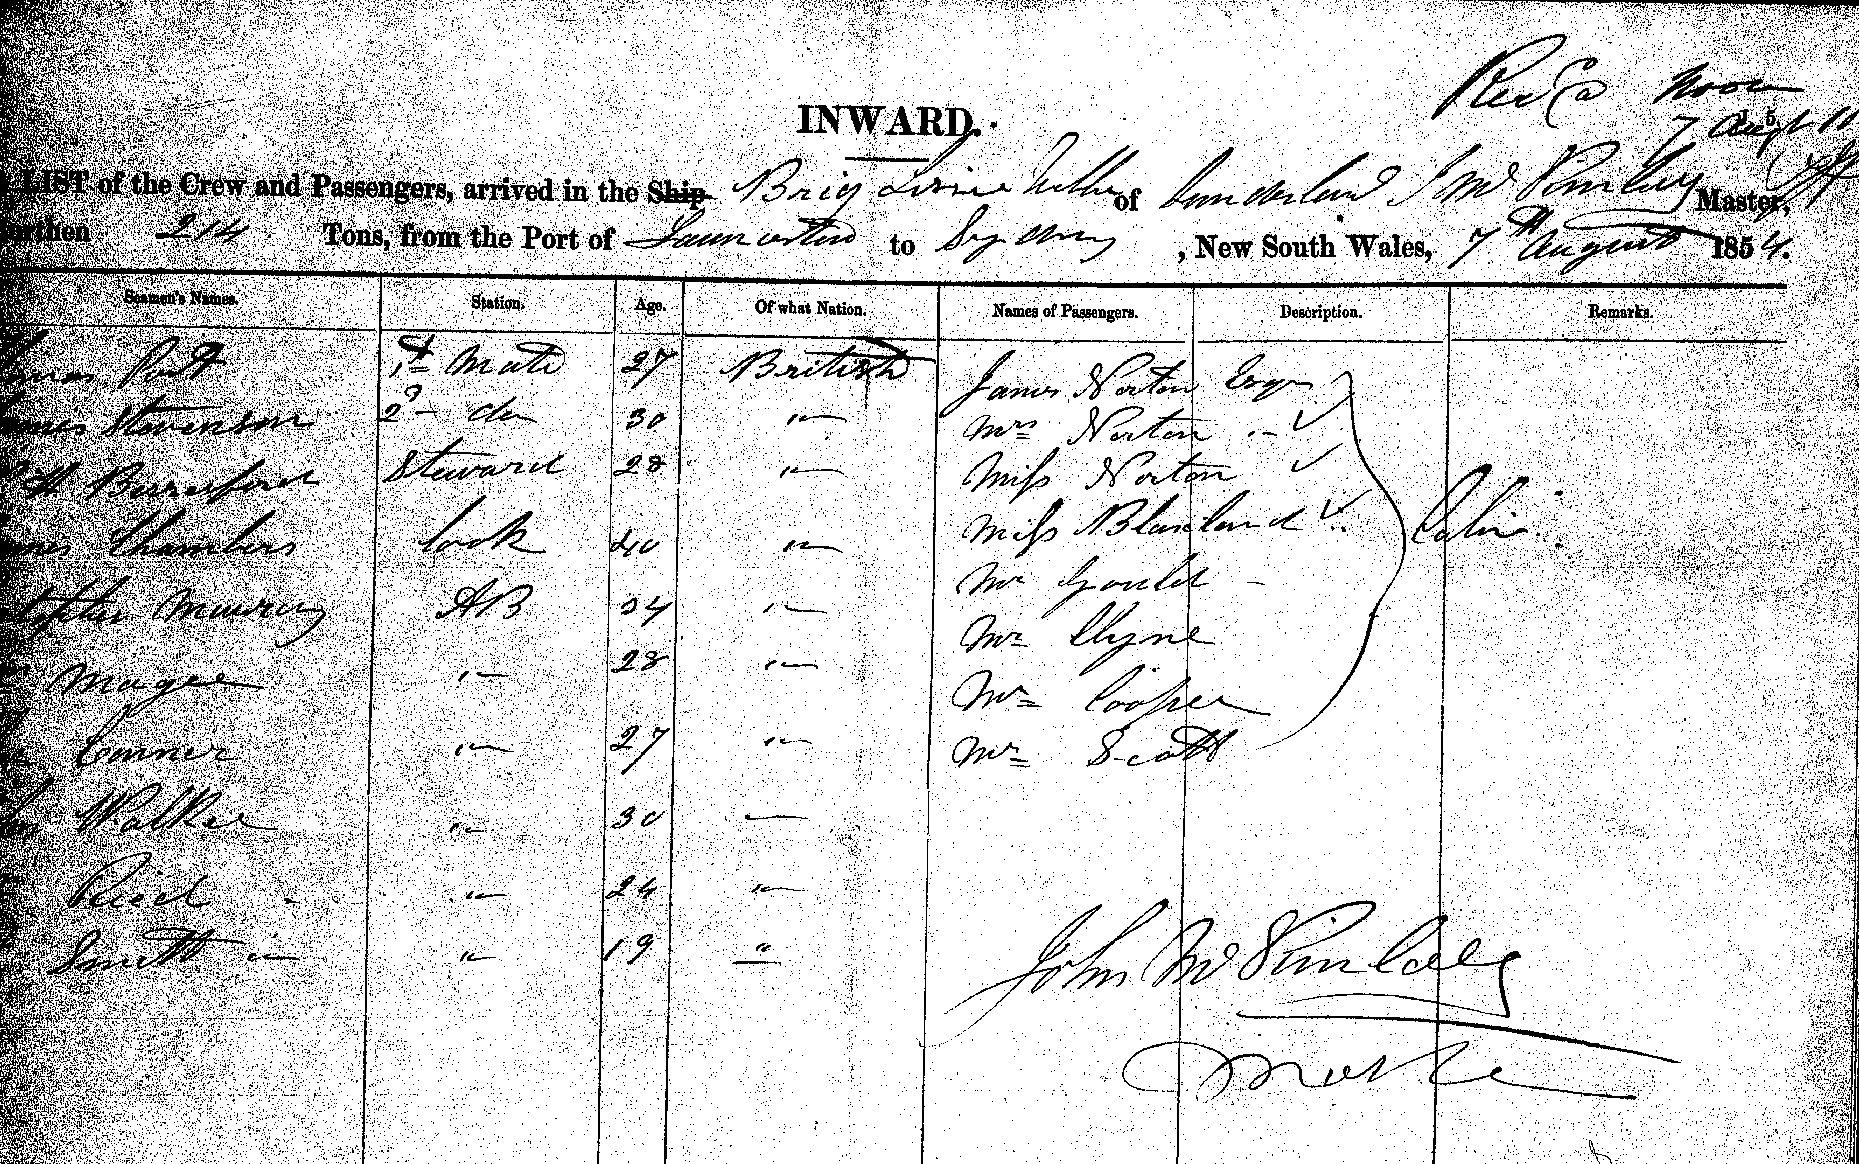 Recd noon
7 Augt
INWARD.
LIST of the Crew and Passengers, arrived in the Ship Brig of Sunderland J Mc Kinlay Master,
Burthen 214 Tons, from the Port of Launceston to Sydney, New South Wales, 7th August 1854.
Seamen's Names. Station. Age. Of what Nation. Names of Passengers. Description. Remarks.
Post 1st Mate 27 British James Norton Esqr
Stevenson 2d do 30 "— Mrs Norton "—
H Berresford Steward 28 "— Miss Norton
Chambers Cook 40 "— Miss Blanland Cabin
Murray AB 34 "— Mr Gould —
Magee "— 28 "— Mr Clyne
Conner "— 27 "— Mr Cooper
Walker "— 30 — Mr Scott
Reid "— 24 "—
Smith "— 19 "
John Mc Kinlay
Master